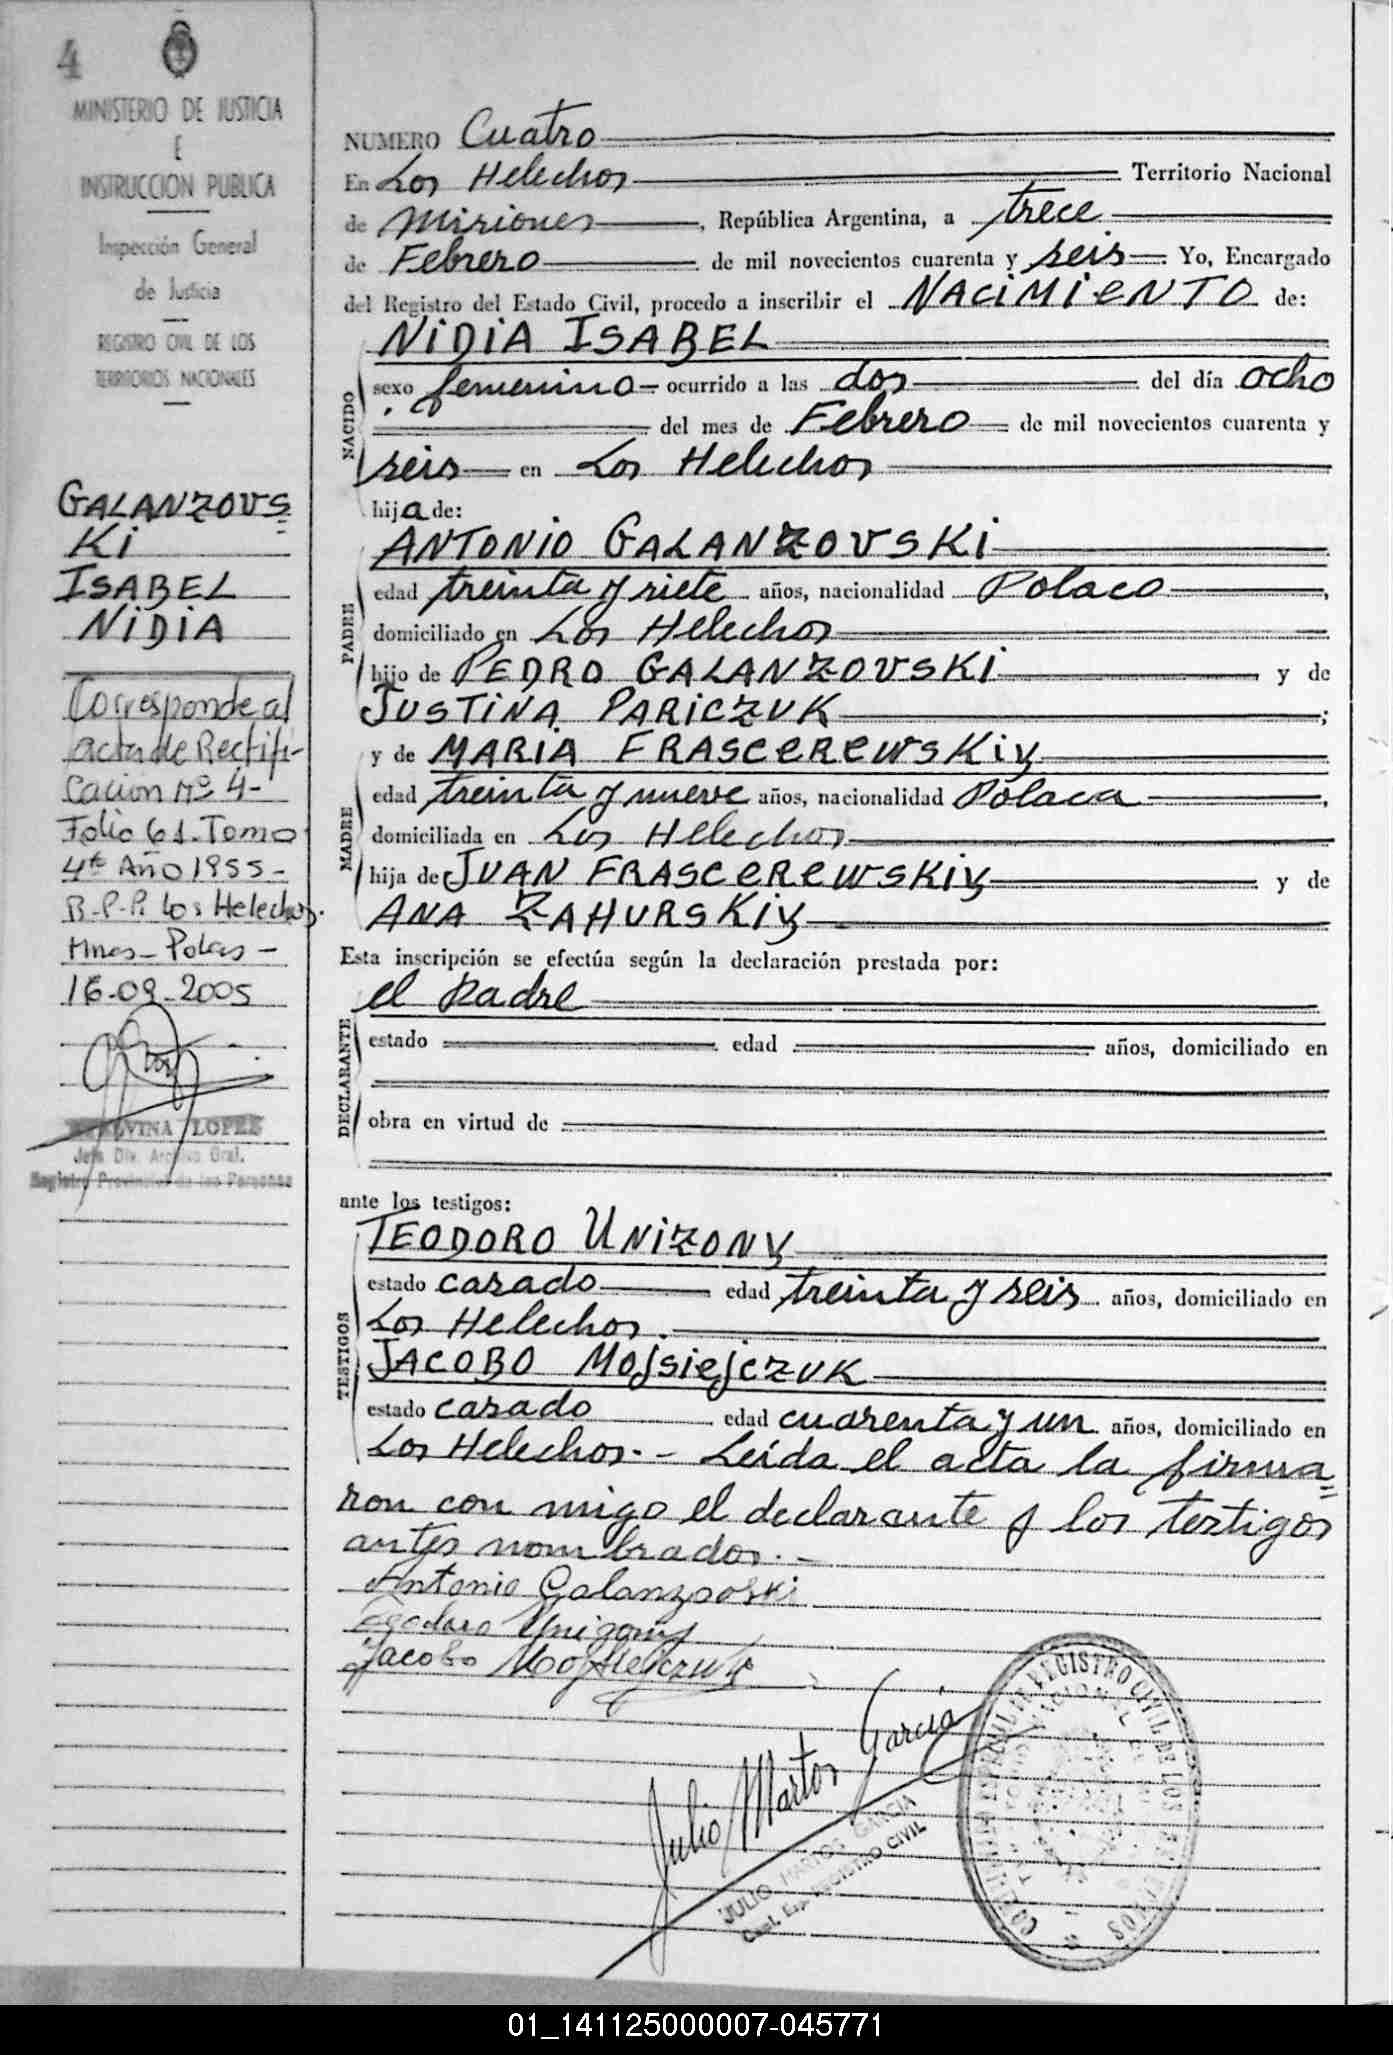 4
MINISTERIO DE JUSTICIA
E
INSTRUCCION PUBLICA
Inspección General
de Justicia
REGISTRO CIVIL DE LOS
TERRITORIOS NACIONALES
GALANZOVS=
Ki
ISABEL
NiDiA
Corresponde al
acta de Rectifi-
cacion Nº 4-
Folio 61. Tomo
4to Año 1955-
R.P.P. Los Helechos.
Mnes-Pdas-
16-09-2005
LOPEZ
Jefa Div. Archivo Gral.
Registro Provincial de las Personas
NUMERO Cuatro
En Los Helechos Territorio Nacional
de Misiones, República Argentina, a trece
de Febrero de mil novecientos cuarenta y seis. Yo, Encargado
del Registro del Estado Civil, procedo a inscribir el NACiMiENTO de:
NiDiA ISABEL
NACIDO
sexo femenino ocurrido a las dos del día ocho
del mes de Febrero de mil novecientos cuarenta y
seis en Los Helechos
hija de:
ANTONiO GALANZOVSKi
PADRE
edad treinta y siete años, nacionalidad Polaco,
domiciliado en Los Helechos
hijo de PEDRO GALANZOVSKi y de
JUSTiNA PARiCZUK;
y de MARiA FRASCEREWSKiY
MADRE
edad treinta y nueve años, nacionalidad Polaca,
domiciliada en Los Helechos
hija de JUAN FRASCEREWSKiY y de
ANA ZAHURSKiY
Esta inscripción se efectúa según la declaración prestada por:
el padre
DECLARANTE
estado edad años, domiciliado en
obra en virtud de
ante los testigos:
TEODORO UNiZONY
TESTIGOS
estado casado edad treinta y seis años, domiciliado en
Los Helechos.
JACOBO MOJSiEJCZUK
estado casado edad cuarenta y un años, domiciliado en
Los Helechos.- Leída el acta la firma=
ron con migo el declarante y los testigos
antes nombrados.-
Antonio Galanzoski
Teodoro Unizony
Jacobo Mojsiejczuk
Julio Martos García
JULIO MARTOS GARCIA
REGISTRO CIVIL
REGISTRO CIVIL DE LOS
01_141125000007-045771